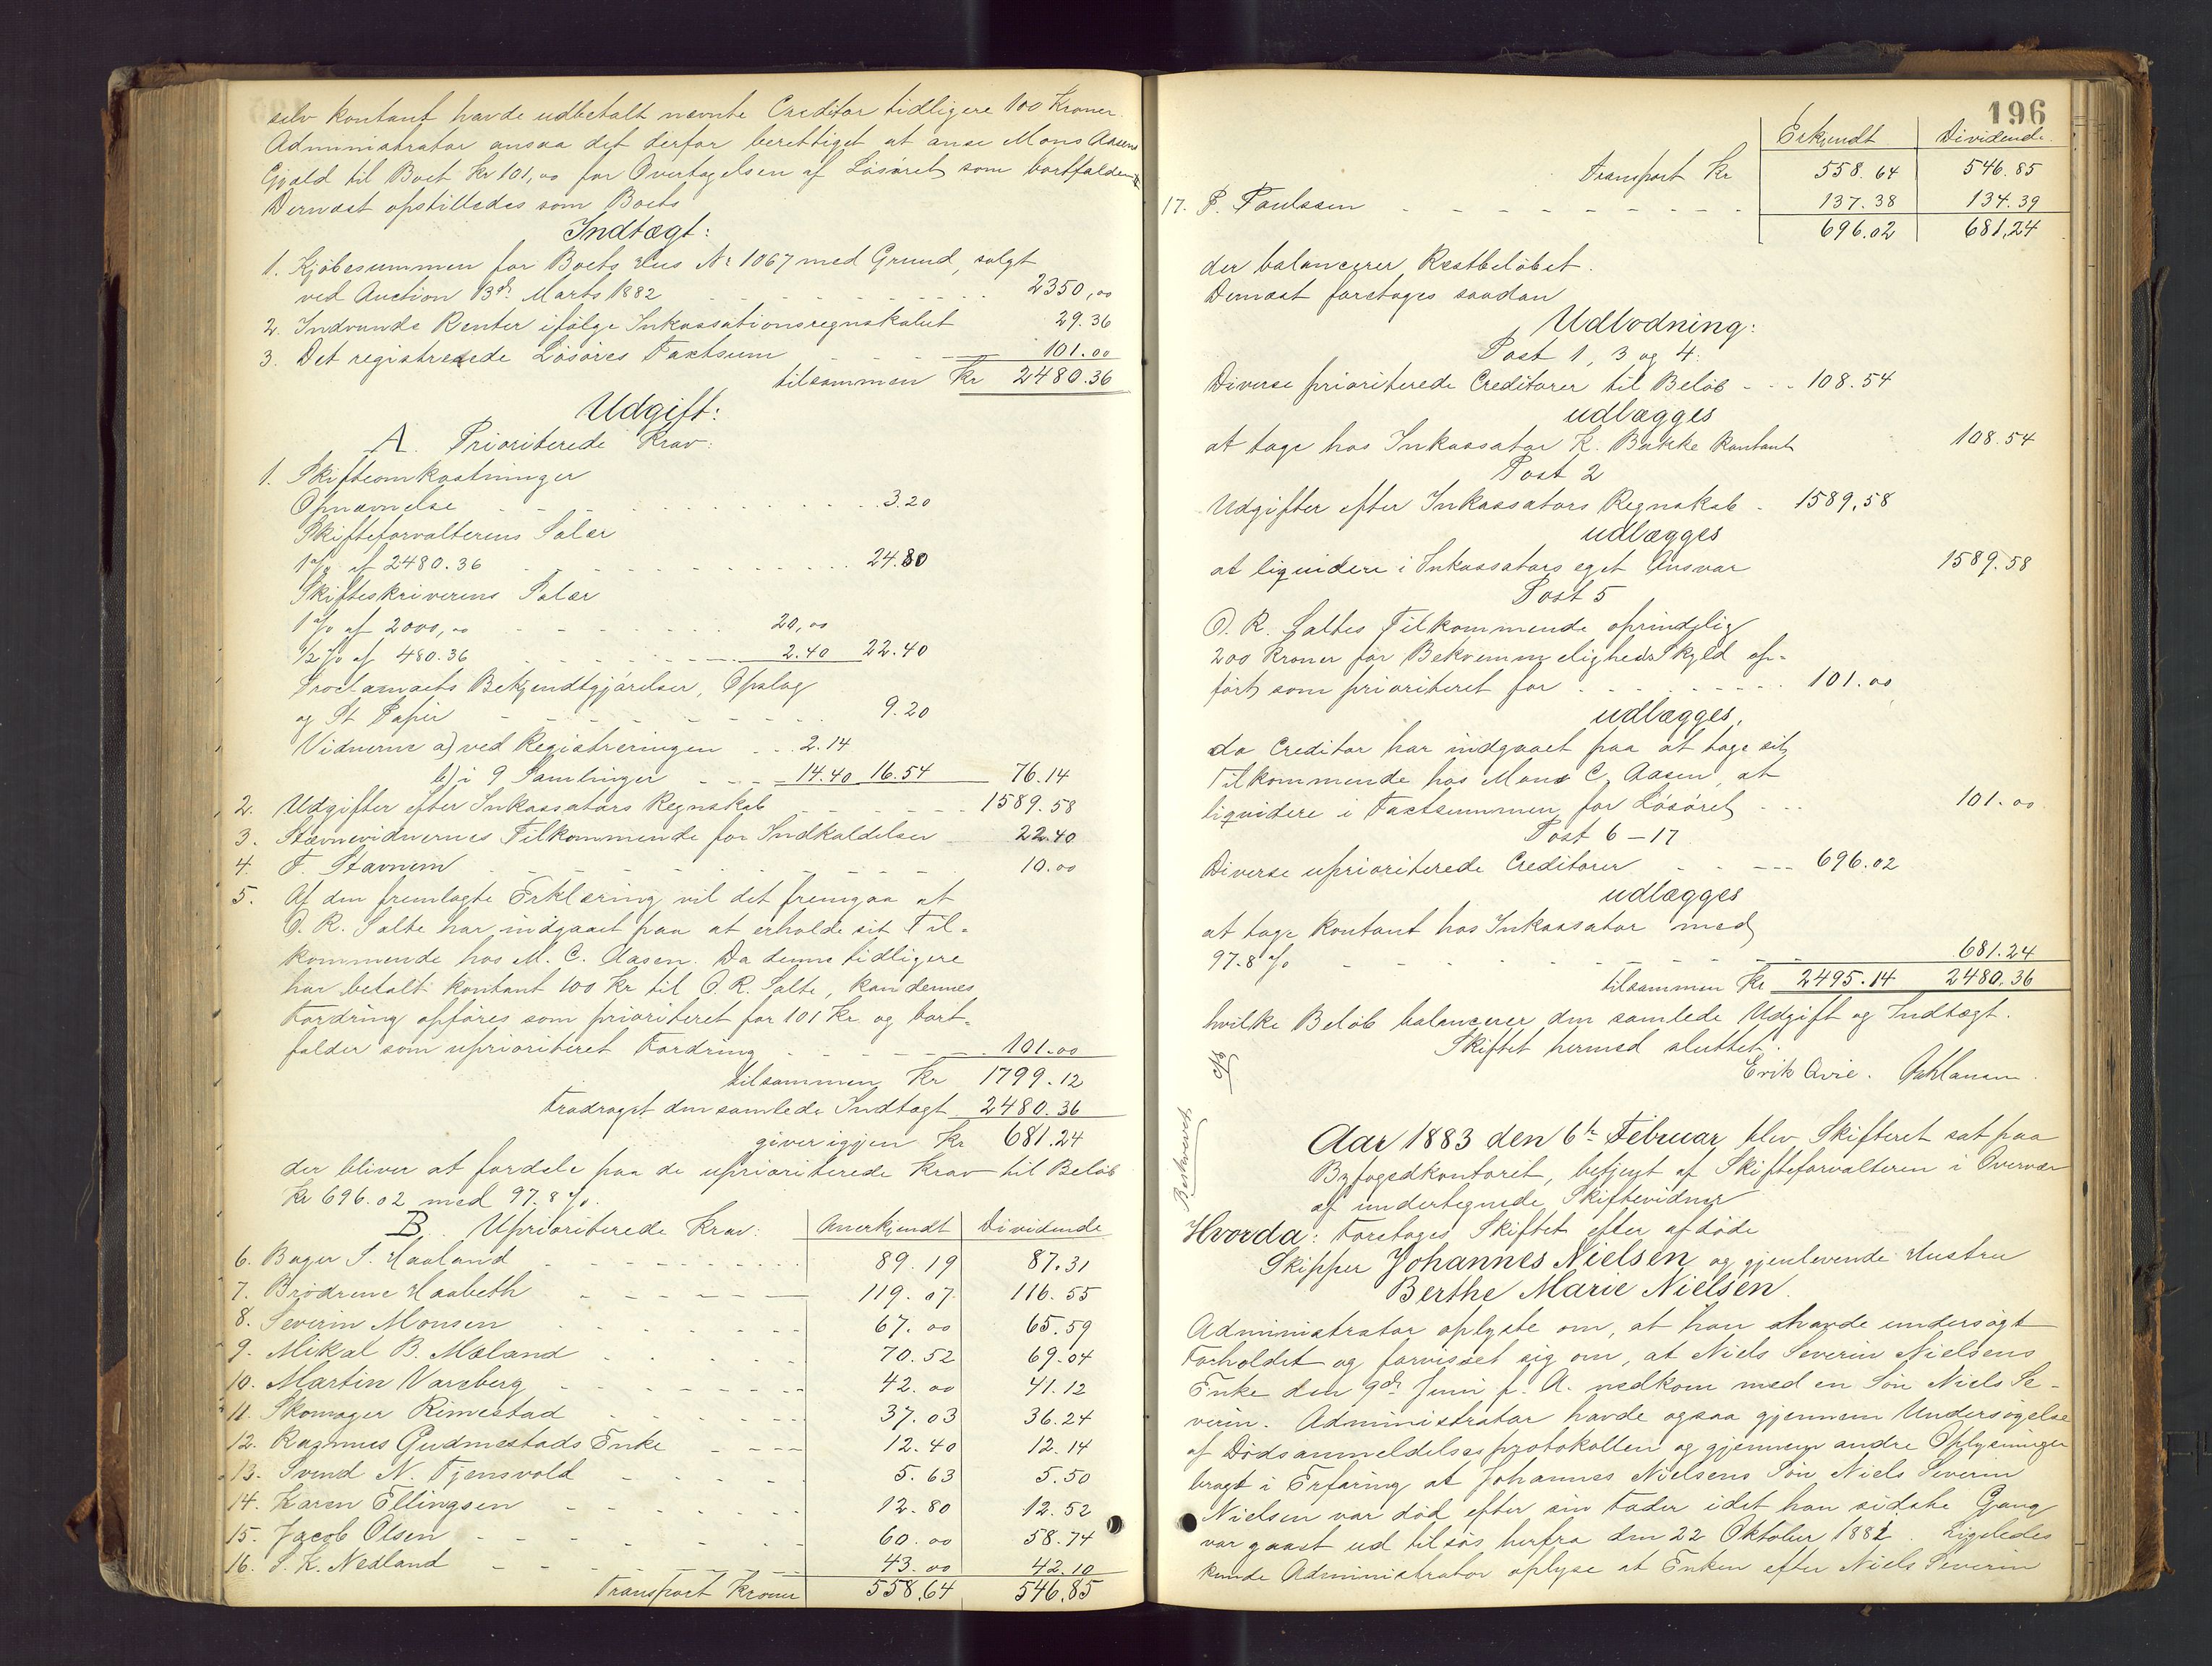 selv kontant havde udbetalt nævnte Creditor tidligere 100 Kroner.
Administrator ansaa det derfor berettiget at anse Mons Aasens
Gjæld til Boet Kr 101,00 for Overtagelsen af Løsøret som bortfalden
Dernæst opstilledes som Boets
Indtægt:
1. Kjøbesummen for Boets Hus № 1067 med Grund, solgt
ved Auction 13de Marts 1882 2350,00
2. Indvundne Renter ifølge Inkassationsregnskabet 29.36
3. Det registrerede Løsøres Taxtsum 101.00
tilsammen Kr 2480.36
Udgift:
A. Prioriterede Krav:
1. Skifteomkostninger
Opnævnelse 3.20
Skifteforvalterens Salær
1 o/o af 2480.36 24.80
Skifteskriverens Salær
1 o/o af 2000,00 20,00
1/2 o/o af 480.36 2.40 22.40
Proclamaets Bekjendtgjørelser, Opslag
og St. Papir 9.20
Vidnerne a) ved Registreringen 2.14
b) i 9 Samlinger 14.40 16.54 76.14
2. Udgifter efter Inkassators Regnskab 1589.58
3. Stævnevidnernes Tilkommende for Indkaldelser 22.40
4. T. Stavnem 10.00
5. Af den fremlagte Erklæring vil det fremgaa at
O. R. Salte har indgaaet paa at erholde sit Til-
kommende hos M. C. Aasen. Da denne tidligere
har betalt kontant 100 Kr til O. R. Salte, kan dennes
Fordring opføres som prioriteret for 101 Kr og bort-
falder som uprioriteret Fordring 101.00
tilsammen Kr 1799.12
Fradraget den samlede Indtægt 2480.36
giver igjen Kr 681.24
der bliver at fordele paa de uprioriterede Krav til Beløb
Kr 696.02 med 97.8 o/o.
B. Uprioriterede Krav: Anerkjendt Dividende
6. Bager S. Haaland 89.19 87.31
7. Brødrene Haabeth 119.07 116.55
8. Severin Monsen 67.00 65.59
9. Mikal B. Mæland 70.52 69.04
10. Martin Varaberg 42.00 41.12
11. Skomager Rimestad 37.03 36.24
12. Rasmus Gudmestads Enke 12.40 12.14
13. Svend N. Tjensvold 5.63 5.50
14. Karen Ellingsen 12.80 12.52
15. Jacob Olsen 60.00 58.74
16. S. K. Nedland 43.00 42.10
Transport Kroner 558.64 546.85
196
Erkjendt Dividende
Transport Kr 558.64 546.85
17. P. Poulssen 137.38 134.39
696.02 681.24
der balancerer Restbeløbet.
Dernæst foretages saadan
Udlodning:
Post 1, 3 og 4.
Diverse prioriterede Creditorer til Beløb 108.54
udlægges
at tage hos Inkassator K. Bakke kontant 108.54
Post 2
Udgifter efter Inkassators Regnskab 1589,58
udlægges
at liquidere i Inkassators eget Ansvar 1589.58
Post 5
O. R. Saltes Tilkommende oprindelig
200 Kroner for Bekvemmeligheds Skyld op-
ført som prioriteret for 101.00
udlægges,
da Creditor har indgaaet paa at tage sit
Tilkommende hos Mons C. Aasen, at
liquidere i Taxtsummen for Løsøret 101.00
Post 6 – 17
Diverse uprioriterede Creditorer 696.02
udlægges
at tage kontant hos Inkassator med
97.8 o/o 681.24
tilsammen Kr 2495.14 2480.36
hvilke Beløb balancerer den samlede Udgift og Indtægt.
Skiftet hermed sluttet.
Erik Qvie.
Beskrevet
Aar 1883 den 6te Februar blev Skifteret sat paa
Byfogedkontoret, betjent af Skifteforvalteren i Overvær
af undertegnede Skiftevidner
Hvorda: Foretoges Skiftet efter afdøde
Skipper Johannes Nielsen og gjenlevende Hustru
Berthe Marie Nielsen.
Administrator oplyste om, at han havde undersøgt
Forholdet og forvisset sig om, at Niels Severin Nielsens
Enke den 9de Juni f. A. nedkom med en Søn Niels Se-
verin. Administrator havde ogsaa gjennem Undersøgelse
af Dødsanmeldelsesprotokollen og gjennem andre Oplysninger
bragt i Erfaring at Johannes Nielsens Søn Niels Severin
Nielsen var død efter sin Fader idet han sidste Gang
var gaaet ud tilsøs herfra den 22 Oktober 1881. Ligeledes
kunde Administrator oplyse at Enken efter Niels Severin